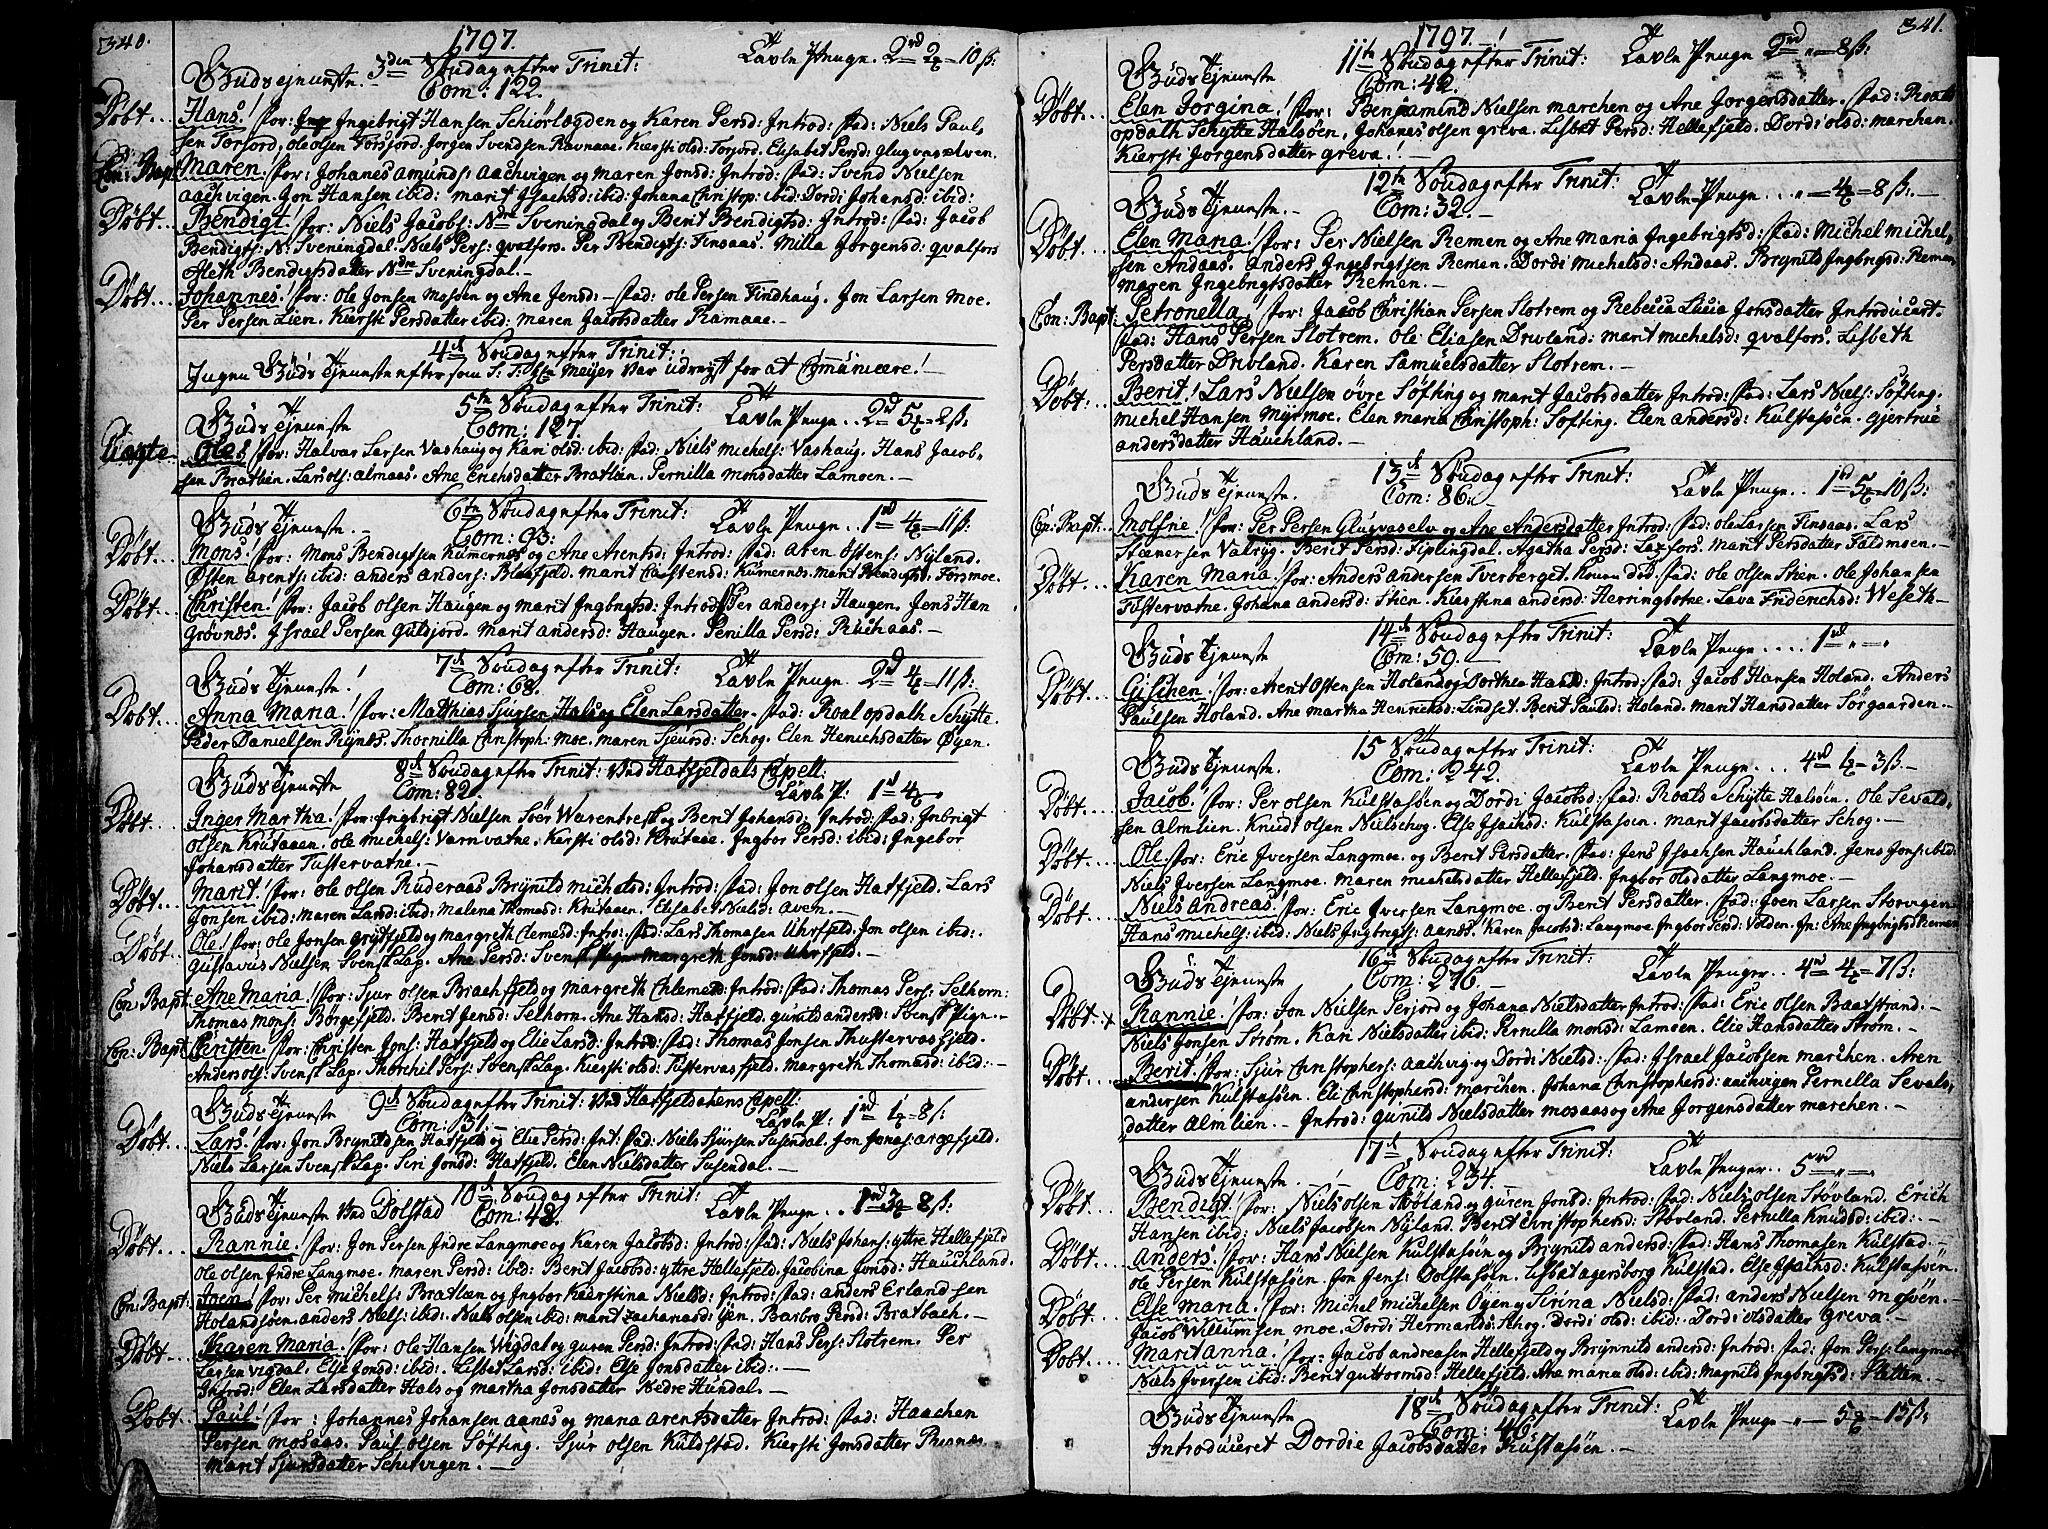 340.
1797.
Gudstjeneste. 3den Søndag efter Trinit: Tavle Penge. 2rd 2 – 10 ß:
Com: 122.
Døbt... Hans! For: Ingebrigt Hansen Schiørlægden og Karen Persd: Introd: Fad: Niels Paul,
sen Forsjord, Ole olsen Forsjord. Jorgen Svendsen Ravnaae. Kiersti olsd: Forsjord. Elisabet Persd: Glugvaselven.
Con: Bapt: Maren! For: Johanes Amunds: Aachvigen og Maren Jonsd: Introd: Fad: Svend Nielsen
Aachvigen. Jon Hansen ibid: Marit Isachsd: ibid: Johana Christop: ibid: Dordi Johansd: ibid:
Døbt... Bendigt! For: Niels Jacobs: Ndre Sveningdal og Berit Bendigtsd: Introd: Fad: Jacob
Bendigts: N: Sveningdal. Niels Pers: qvalfors. Per Bendigts: Finsaas. Milla Jørgensd: qvalfors
Aleth Bendigsdatter Ndre Sveningdal. –
Døbt... Johannes! For: Ole Jonsen Mosøen og Ane Jensd: – Fad: Ole Persen Findhaug. Jon Larsen Moe.
Per Persen Lien. Kiersti Persdatter ibid: Maren Jacobsdatter Ramaae. –
4de Søndag efter Trinit:
Ingen Gudstjeneste efter som S: T: Hr: Meijer var udrejst for at Communicere! –
5te Søndag efter Trinit: Tavle Penge.. 2rd 5 – 8 ß:
Gudstjeneste Com: 127.
Ole! For: Halvar Larsen Vashaug og Kari olsd: ibid: Fad: Niels Michels: Vashaug. Hans Jacob,
sen Bratlien. Lars ols: Almaas. Ane Erichsdatter Bratlien. Pernilla Monsdatter Lamoen. –
6te Søndag efter Trinit: Tavle Penge.. 1rd 4 – 11 ß:
Gudstjeneste. – Com: 93.
Døbt... Mons! For: Mons Bendigtsen Kumernæs og Ane Arentsd: Introd: Fad: Aren Østens: Nyland.
Østen Arents: ibid: Anders Anders: Blaafjeld. Marit Carstensd: Kumernæs. Marit Bendigts: Forsmoe.
Døbt... Christen! For: Jacob olsen Haugen og Marit Ingbrigtsd: Introd: Per Anders: Haugen. Jens Han
Grøvnes. Israel Persen Guldjord. Marit Andersd: Haugen. Penilla Persd: Ruchaas. –
7de Søndag efter Trinit: Tavle Penge 2rd 4 – 11 ß:
Gudstjeneste! Com: 68.
Døbt... Anna Maria! For: Matthias Sjursen Hals og Elen Larsdatter. Fad: Roal opdalh Schytte.
Peder Danielsen Rynes. Thornilla Christoph: Moe. Maren Sjeursd: Schog. Elen Henichsdatter Øyen.
Gudstjeneste 8de Søndag efter Trinit: ved Hatfjeldals Capell:
Com: 82 Tavle P: 1rd 4
Døbt... Inger Martha! For: Ingbrigt Nielsen Søer Warentresk og Berit Johansd: Introd: Fad: Inbrigt
olsen Krutaaen. Ole Michels: Varnvatne. Kersti olsd: Krutaae. Ingbor Persd: ibid: Ingebor
Johansdatter Tustervatne. –
Døbt... Marit! For: Ole olsen Ruderaas Brynild Michelsd: Introd: Fad: Jon olsen Hatfjeld. Lars
Jonsen ibid: Maren Larsd: ibid: Malena Thomasd: Krutaaen. Elisabet Nielsd: Aven. –
Døbt... Ole! For: Ole Jonsen Grytfjeld og Margreth Clemesd: Intro: Fad: Lars Thomasen Uhrfjeld. Jon olsen ibid:
Gustavus Nielsen Svensk Lap. Ane Persd: Svensk Pige Margreth Jonsd: Uhrfjeld. –
Con: Bapt: Ane Maria! For: Sjur olsen Brachfjeld og Margreth Chlemetsd: Introd: Fad: Thomas Pers: Selhorn:
Thomas Mons: Børgefjeld. Berit Jensd: Selhorn. Ane Hansd: Hatfjeld. Gunild Andersd: Svensk Pige. –
Con: Bapt: Christen. For: Christen Jons: Hatfjeld og Elie Larsd: Introd: Fad: Thomas Jonsen Thustervasfjeld.
Anders ols: Svensk Lap. Thorchil Pers: Svensk Lap. Kiersti olsd: Tustervasfjeld. Margreth Thomasd: ibid: –
Gudstjeneste 9de Søndag efter Trinit: Ved Hatfjeldahens Capell:
Com: 31. – Tavle P: 1rd 1 – 8 ß:
Døbt... Lars! For: Jon Brynildsen Hatfjeld og Elie Persd: Int: Fad: Niels Sjursen Susendal. Jon Jonas: Argefjeld.
Niels Larsen Svensk Lap. Siri Jonsd: Hatfjeld. Elen Nielsdatter Susendal. –
10de Søndag efter Trinit: Tavle Penge.. 1rd 3 – 8 ß:
Gudstjeneste ved Dolstad Com: 48.
Døbt... Rannie! For: Jon Persen Indre Langmoe og Karen Jacobsd: Introd: Fad: Niels Johans: yttre Hellefjeld
Ole olsen Indre Langmoe. Maren Persd: ibid: Berit Jacobsd: yttre Hellefjeld. Jacobina Jonsd: Hauchland.
Con: Bapt: Aren! For: Per Michels: Bratlæen og Ingbor Kierstina Nielsd: Introd: Fad: Anders Erlandsen
Holandsøen. Anders Niels: ibid: Niels olsen ibid: Marit Zachariasd: ijen. Barbro Persd: Bratbach. –
Døbt... Karen Maria! For: Ole Hansen Wigdal og Guren Persd: Introd: Fad: Hans Pers: Slotrem. Per
Larsen Vigdal. Else Jonsd: ibid: Lisbet Larsd: ibid: Else Jonsdatter ibid: –
Introd: Elen Larsdatter Hals og Martha Jonsdatter Nedre Hundal. –
Døbt... Paul! For: Johannes Johansen Aanes og Maria Arentsdatter Introd: Fad: Haachen
Persen Mosaas. Paul olsen Søfting. Sjur olsen Kuldstad. Kiersti Jonsdatter Rianes
Marit Sjursdatter Schitvigen. –
341.
1797. –!
11te Søndag efter Trinit: Tavle Penge 2rd „ – 8 ß:
Gudstjeneste Com: 42.
Døbt... Elen Jorgina! For: Benjamind Nielsen Marchen og Ane Jorgensdatter. Fad: Roald
opdalh Schytte Halsøen. Johanes olsen Greva. Lisbet Persd: Hellefjeld. Dordi olsd: Marchen.
Kiersti Jorgensdatter Greva.! –
12te Søndag efter Trinit: Tavle Penge ... „ 4 – 8 ß: –
Gudstjeneste. – Com: 32. –
Døbt... Elen Maria! For: Per Nielsen Remen og Ane Maria Ingebrigtsd: Fad: Michel Michel,
sen Andaas. Anders Ingebrigtsen Remen. Dordi Michelsd: Andaas. Brynild Ingbrigsd: Remen
Maren Ingebrigtsdatter Remen. –
Con: Bapt: Petronella! For: Jacob Christian Persen Slotrem og Rebecca Lucia Jonsdatter Introduceret.
Fad: Hans Persen Slotrem. Ole Eliasen Drevland: Marit Michelsd: qvalfors. Lisbeth
Persdatter Drevland. Karen Samuelsdatter Slotrem. –
Døbt... Berit! Lars Nielsen øvre Søfting og Marit Jacobsdatter Introd: Fad: Lars Niels: Søfting.
Michel Hansen Myrmoe. Elen Maria Christoph: Søfting. Elen Andersd: Kulstasøen. Gjertrue
Andersdatter Hauchland. –
13de Søndag efter Trinit: Tavle Penge.. 1rd 5 – 10 ß:
Gudstjeneste. Com: 86.
Con: Bapt... Molfrie! For: Per Persen Glugvaselv og Ane Andersdatter Introd: Fad: Ole Larsen Finsaas. Lars
Steenersen Valryg. Berit Persd: Fiplingdal. Agatha Persd: Laxfors. Marit Persdatter Faldmoen. –
Døbt... Karen Maria! For: Anders Andersen Tverberget. Konen død. Fad: Ole olsen Stien. Ole Johansen
Tustervatne. Johana Andersd: Stien. Kierstina Andersd: Herringbotne. Lava Friderichsd: Weseth –
14de Søndag efter Trinit: Tavle Penge.... 1rd „ – „
Gudstjeneste Com: 59. –
Døbt... Gitschen! For: Arent Ostensen Holand og Dorthea Hansd: Introd: Fad: Jacob Hansen Holand. Anders
Paulsen Holand. Ane Martha Henrietsd: Lindset. Berit Paulsd: Holand. Marit Hansdatter Sørgaarden –
15 Søndag efter Trinit: Tavle Penge.... 4rd 1 – 3 ß: –
Gudstjeneste. Com: 242.
Døbt... Jacob! For: Per olsen Kulstasøen og Dordi Jacobsd: Fad: Roald Schytte Halsøen. Ole Sevald,
sen Almlien. Knud olsen Nielschog. Else Isachsd: Kulstasøen. Marit Jacobsdatter Schog. –
Døbt... Ole! For: Eric Iversen Langmoe. og Berit Persdatter. Fad: Jens Isachsen Hauchland. Jens Jons: ibid:
Niels Iversen Langmoe. Maren Michelsdatter Hellefjeld. Ingbor olsdatter Langmoe. –
Døbt... Niels Andreas! For: Eric Iversen Langmoe. og Berit Persdatter. Fad: Joen Larsen Storvigen
Hans Michels: ibid: Niels Ingbrigts: Aanes. Karen Jacobsd: Langmoe. Ingbor Persd: Volden. In: Ane Ingbrigtsd Remen
16de Søndag efter Trinit: Tavle Penger.. 4rd 4 – 7 ß:
Gudstjeneste Com: 276. –
Døbt.. Rannie! For: Jon Nielsen Perjord og Johana Nielsdatter Introd: Fad: Eric olsen Baatstrand. –
Niels Jonsen Strøm. Kari Nielsdatter ibid: Pernilla Monsd: Lamoen. Elie Hansdatter Strøm. –
Døbt... Berit! For: Sjur Christophers: Aachvig og Dordi Nielsd: Fad: Israel Jacobsen Marchen. Aren
Andersen Kulstasøen. Eli Christophersd: Marchen. Johana Christophersd: Aachvigen Pernella Sevals,
datter Almlien. – Introd: Gunild Nielsdatter Mosaas og Ane Jorgensdatter Marchen. –
17de Søndag efter Trinit: Tavle Penger.. 5rd „ – „
Gudstjeneste. – Com: 234.
Døbt... Bendigt! For: Niels olsen Støvland og Guren Jonsd: Introd: Fad: Niels olsen Støvland. Erich
Hansen ibid: Niels Jacobsen Nyland. Berit Christophersd: Støvland. Pernilla Knudsd: ibid: –
Døbt... Anders! For: Hans Nielsen Kulstasøin og Brynild Andersd: Fad: Hans Thomasen Kulstad. –
Ole Persen Kulstasøen. Jon Jens: Dolstasøen. Lisbet Agersborg Kulstad. Else Isachsd: Kulstasøen.
Døbt... Else Maria! For: Michel Michelsen Øyen og Sirina Nielsd: Fad: Anders Nielsen Mosøen. –
Jacob Willumsen Moe. Dordi Hermansd: Schog. Dordi olsd: ibid: Dordi olsdatter Greva. –
Døbt... Marit Anna! For: Jacob Andreasen Hellefjeld og Brynnild Andersd: Introd: Fad: Jon Pers: Langmoe
Niels Iversen ibid: Berit Guttormsd: Hellefjeld. Ane Maria olsd: ibid: Magnild Ingbrigtsd: Sletten. –
18de Søndag efter Trinit: Tavle Penge – „ – 5 – 15 ß:
Gudstjeneste Com: 46.
Introduceret Dordie Jacobsdatter Kulstasøen. –